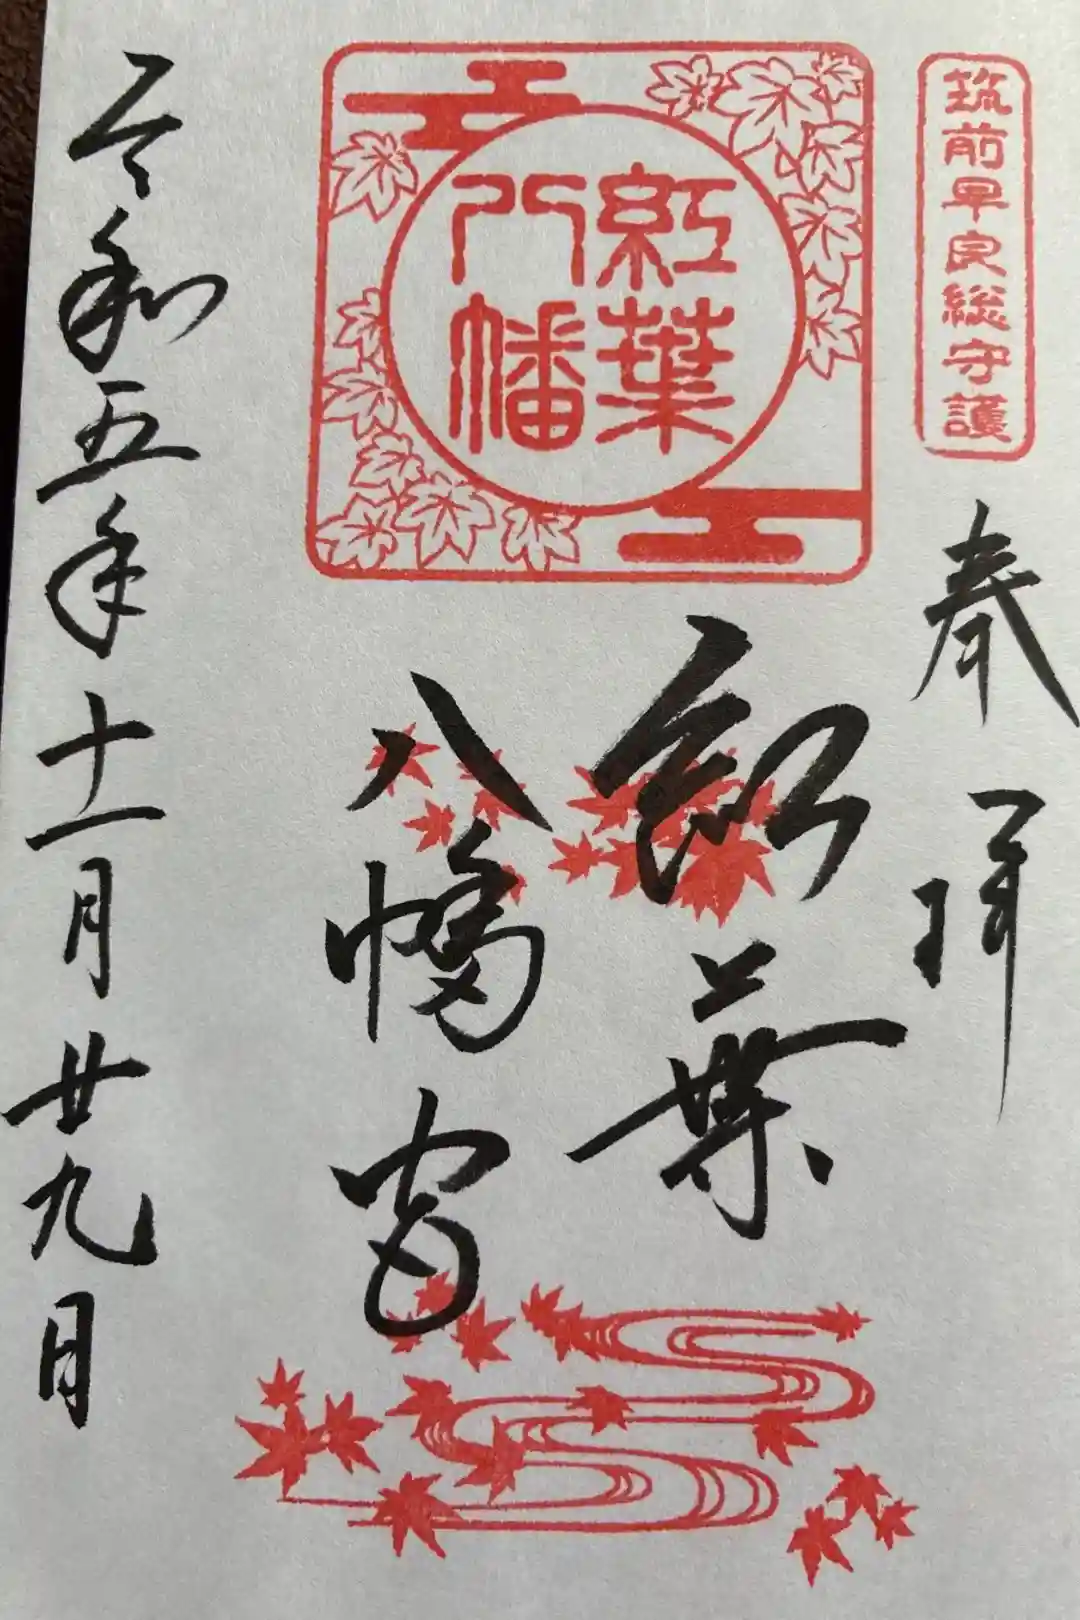 筑前早良総守護
奉拝
紅葉
八幡
紅葉
八幡宮
令和五年十一月廿九日